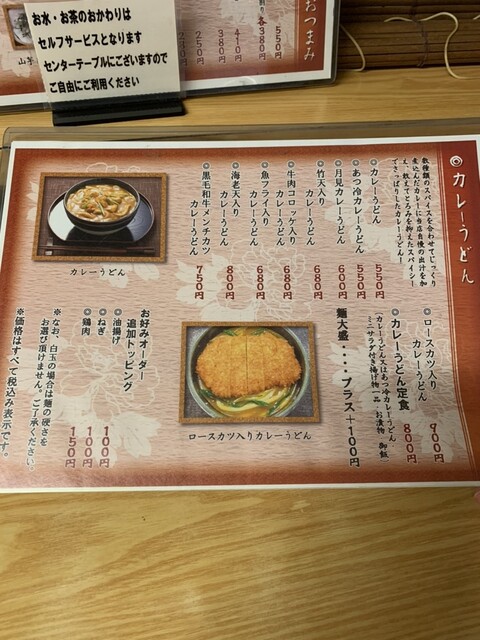 お水・お茶のおかわりは
セルフサービスとなります
センターテーブルにございますので
ご自由にご利用ください
おつまみ
550円
各380円
410円
380円
250円
カレーうどん
数種類のスパイスを合わせてじっくり
煮込んだカレーに当店自慢の出汁を加
え、敢えてとろみを抑えたスパイシー
でさっぱりしたカレーうどん!
カレーうどん 550円
あつ冷カレーうどん 550円
月見カレーうどん 600円
竹天入り
カレーうどん 680円
牛肉コロッケ入り
カレーうどん 680円
魚フライ入り
カレーうどん 680円
海老天入り
カレーうどん 800円
黒毛和牛メンチカツ 750円
カレーうどん
ロースカツ入り
カレーうどん 900円
カレーうどん定食 800円
カレーうどん又はあつ冷カレーうどん
ミニサラダ付き揚げ物一品・お漬物 御飯
麺大盛・・・・プラス+100円
ロースカツ入りカレーうどん
お好みオーダー
追加トッピング
油揚げ 100円
ねぎ 100円
鶏肉 150円
※なお、白玉の場合は麺の硬さを
お選び頂けません。ご了承ください
※価格はすべて税込み表示です。